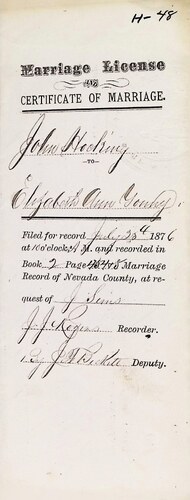 H-48
Marriage License
AND
CERTIFICATE OF MARRIAGE.
John Hocking
—TO—
Elizabeth Ann
Filed for record July 1876
at 10 o'clock, A M. and recorded in
Book 2 Page Marriage
Record of Nevada County, at re-
quest of J Sims
J J Rogers Recorder.
By Deputy.